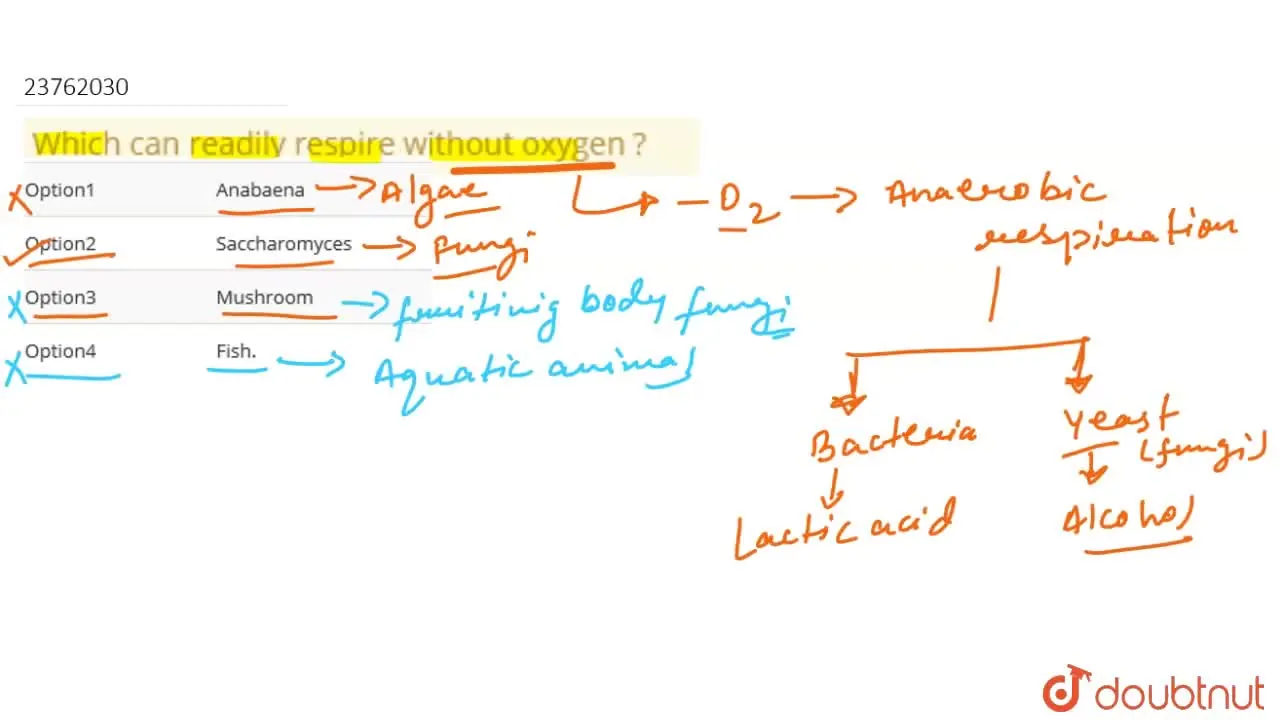 23762030
Which can readily respire without oxygen ?
Option1 Anabaena → Algae
Option2 Saccharomyces → Fungi
Option3 Mushroom → fruitinig body fungi
Option4 Fish. → Aquatic animal
→ - O2 → Anaerobic
respiration
Bacteria
Lactic acid
Yeast
(fungi)
Alcohol
doubtnut